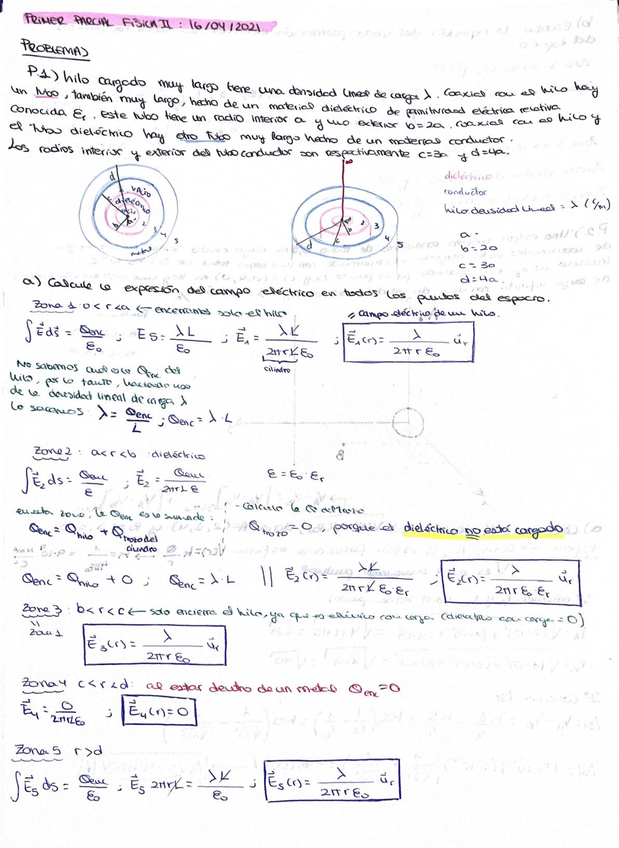 PRIMER PARCIAL FISICA II : 16/04/2021
PROBLEMAS
P.1) hilo cargado muy largo tiene una densidad lineal de carga λ. Coaxial con el hilo hay
un tubo, también muy largo, hecho de un material dieléctrico de permitividad eléctrica relativa
conocida εr. Este tubo tiene un radio interior a y uno exterior b=2a. Coaxial con el hilo y
el tubo dieléctrico hay otro tubo muy largo hecho de un material conductor.
Los radios interior y exterior del tubo conductor son respectivamente c=3a y d=4a.
dieléctrico
conductor
hilo densidad lineal = λ (C/m)
a =
b = 2a
c = 3a
d = 4a
d
vacío
2 3 4 5
metal
d c 2 3 4 5
a) Calcule la expresión del campo eléctrico en todos los puntos del espacio.
Zona 1: 0<r<a ← encerramos solo el hilo
= campo eléctrico de un hilo.
∫E⃗ds⃗ = Qenc/ε0 ; E S = λL/ε0 ; E⃗1 = λL/2πrLε0 ; E⃗1(r) = λ/2πrε0 u⃗r
cilindro
No sabemos cuál es la Qenc del
hilo, por lo tanto, haciendo uso
de la densidad lineal de carga λ
lo sacamos: λ = Qenc/L ; Qenc = λ·L
Zona 2: a<r<b : dieléctrico
∫E⃗2 ds = Qenc/ε ; E⃗2 = Qenc/2πrLε ε = ε0·εr
en esta zona, la Qenc es la suma de:
- Calculo la Q del trozo
Qenc = Qhilo + Qtrozo del cilindro
Qtrozo = 0, porque el dieléctrico no está cargado
Qenc = Qhilo + 0 ; Qenc = λ·L || E⃗2(r) = λL/2πrLε0εr ; E⃗2(r) = λ/2πrε0·εr u⃗r
Zona 3: b<r<c ← solo encierra el hilo, ya que es el único con carga (dieléctrico con carga = 0)
=
zona 1
E⃗3(r) = λ/2πrε0 u⃗r
Zona 4 c<r<d: al estar dentro de un metal Qenc=0
E⃗4 = 0/2πrLε0 ; E⃗4(r) = 0
Zona 5 r>d
∫E⃗5 ds = Qenc/ε0 ; E⃗5 2πrL = λL/ε0 ; E⃗5(r) = λ/2πrε0 u⃗r